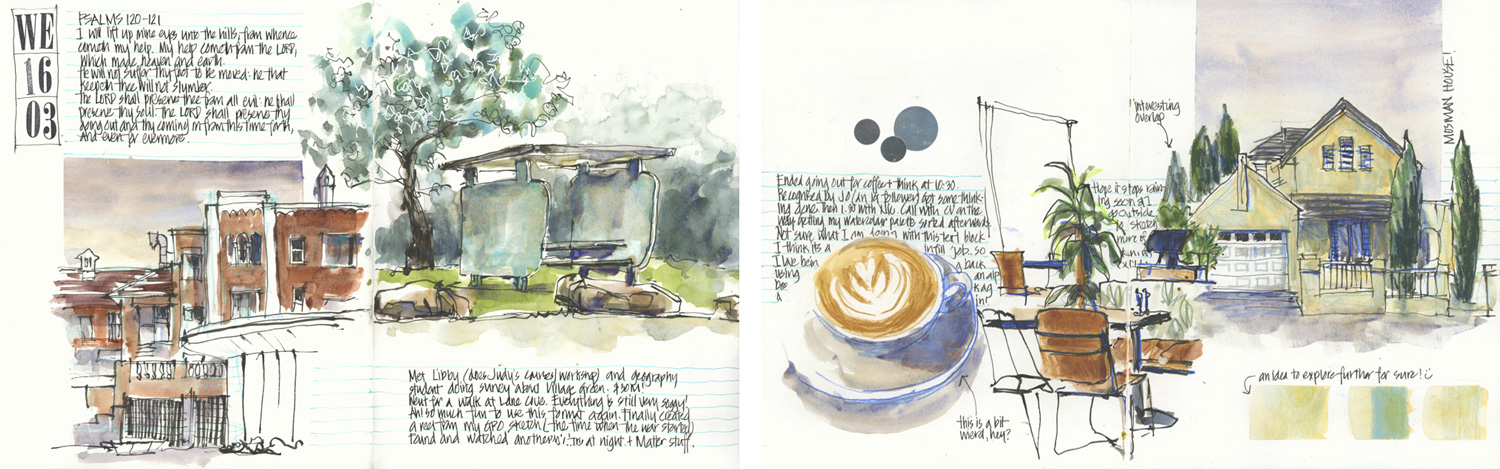 WE
16
03
PSALMS 120-121
I will lift up mine eyes unto the hills, from whence
cometh my help. My help cometh from the LORD,
which made heaven and earth.
He will not suffer thy foot to be moved: he that
keepeth thee will not slumber.
The LORD shall preserve thee from all evil: he shall
preserve thy soul. The LORD shall preserve thy
going out and thy coming in from this time forth,
and even for evermore.
Met Libby (does Judy's courses/workshop) and geography
student doing survey about village green.
Went for a walk at Lane Cove. Everything is still very soggy!
Ah! so much fun to use this format again. Finally created
a reel from my GPO sketch (the time when the war started)
found and watched another at night + Mater stuff.
Ended going out for coffee think at 10:30.
Recognised by Jo (an ig follower) got some think-
ing done. Then 1:30 with NK. Call with CV on the
way. Getting my watercolour palette sorted afterwards.
Not sure what I am doing with this text block!
I think its a infill job. so
I've bein a back
using an alp
kag
a in!
this is a bit
weird, hey?
interesting
overlap
Hope it stops rain
ing soon so I
go outside
to sketch
more of
MOSMAN HOUSE!
an idea to explore further for sure!